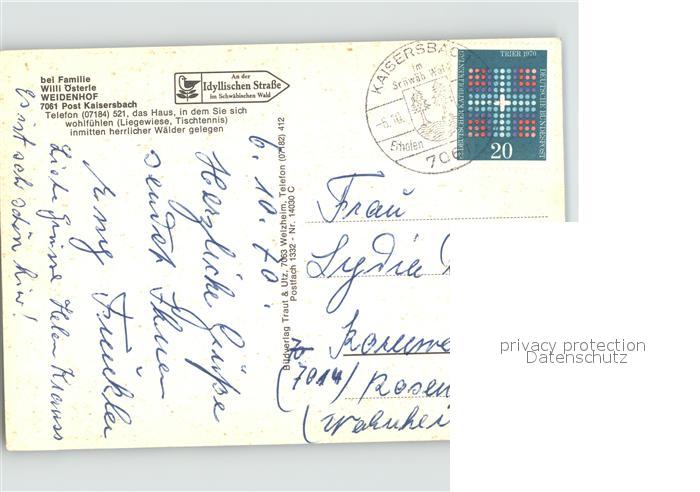 bei Familie
Willi Österle
WEIDENHOF
7061 Post Kaisersbach
Telefon (07184) 521, das Haus, in dem Sie sich
wohlfühlen (Liegewiese, Tischtennis)
inmitten herrlicher Wälder gelegen
An der
Idyllischen Straße
im Schwäbischen Wald
KAISERSBAC
im
Schwäb Wald
-6.10.
Erholen
706
TRIER 1970
DEUTSCHER KATHOLIKENTAG
DEUTSCHE BUNDESPOST
20
6. 10. 70.
Herzliche Grüße
sendet Ihnen
Es ist sehr schön hier!
Liebe Grüsse Helen Krauss
Bildverlag Traut & Utz, 7063 Welzheim, Telefon (07182) 412
Postfach 1332 - Nr. 14030 C
Frau
Lydia
(7014)
privacy protection
Datenschutz